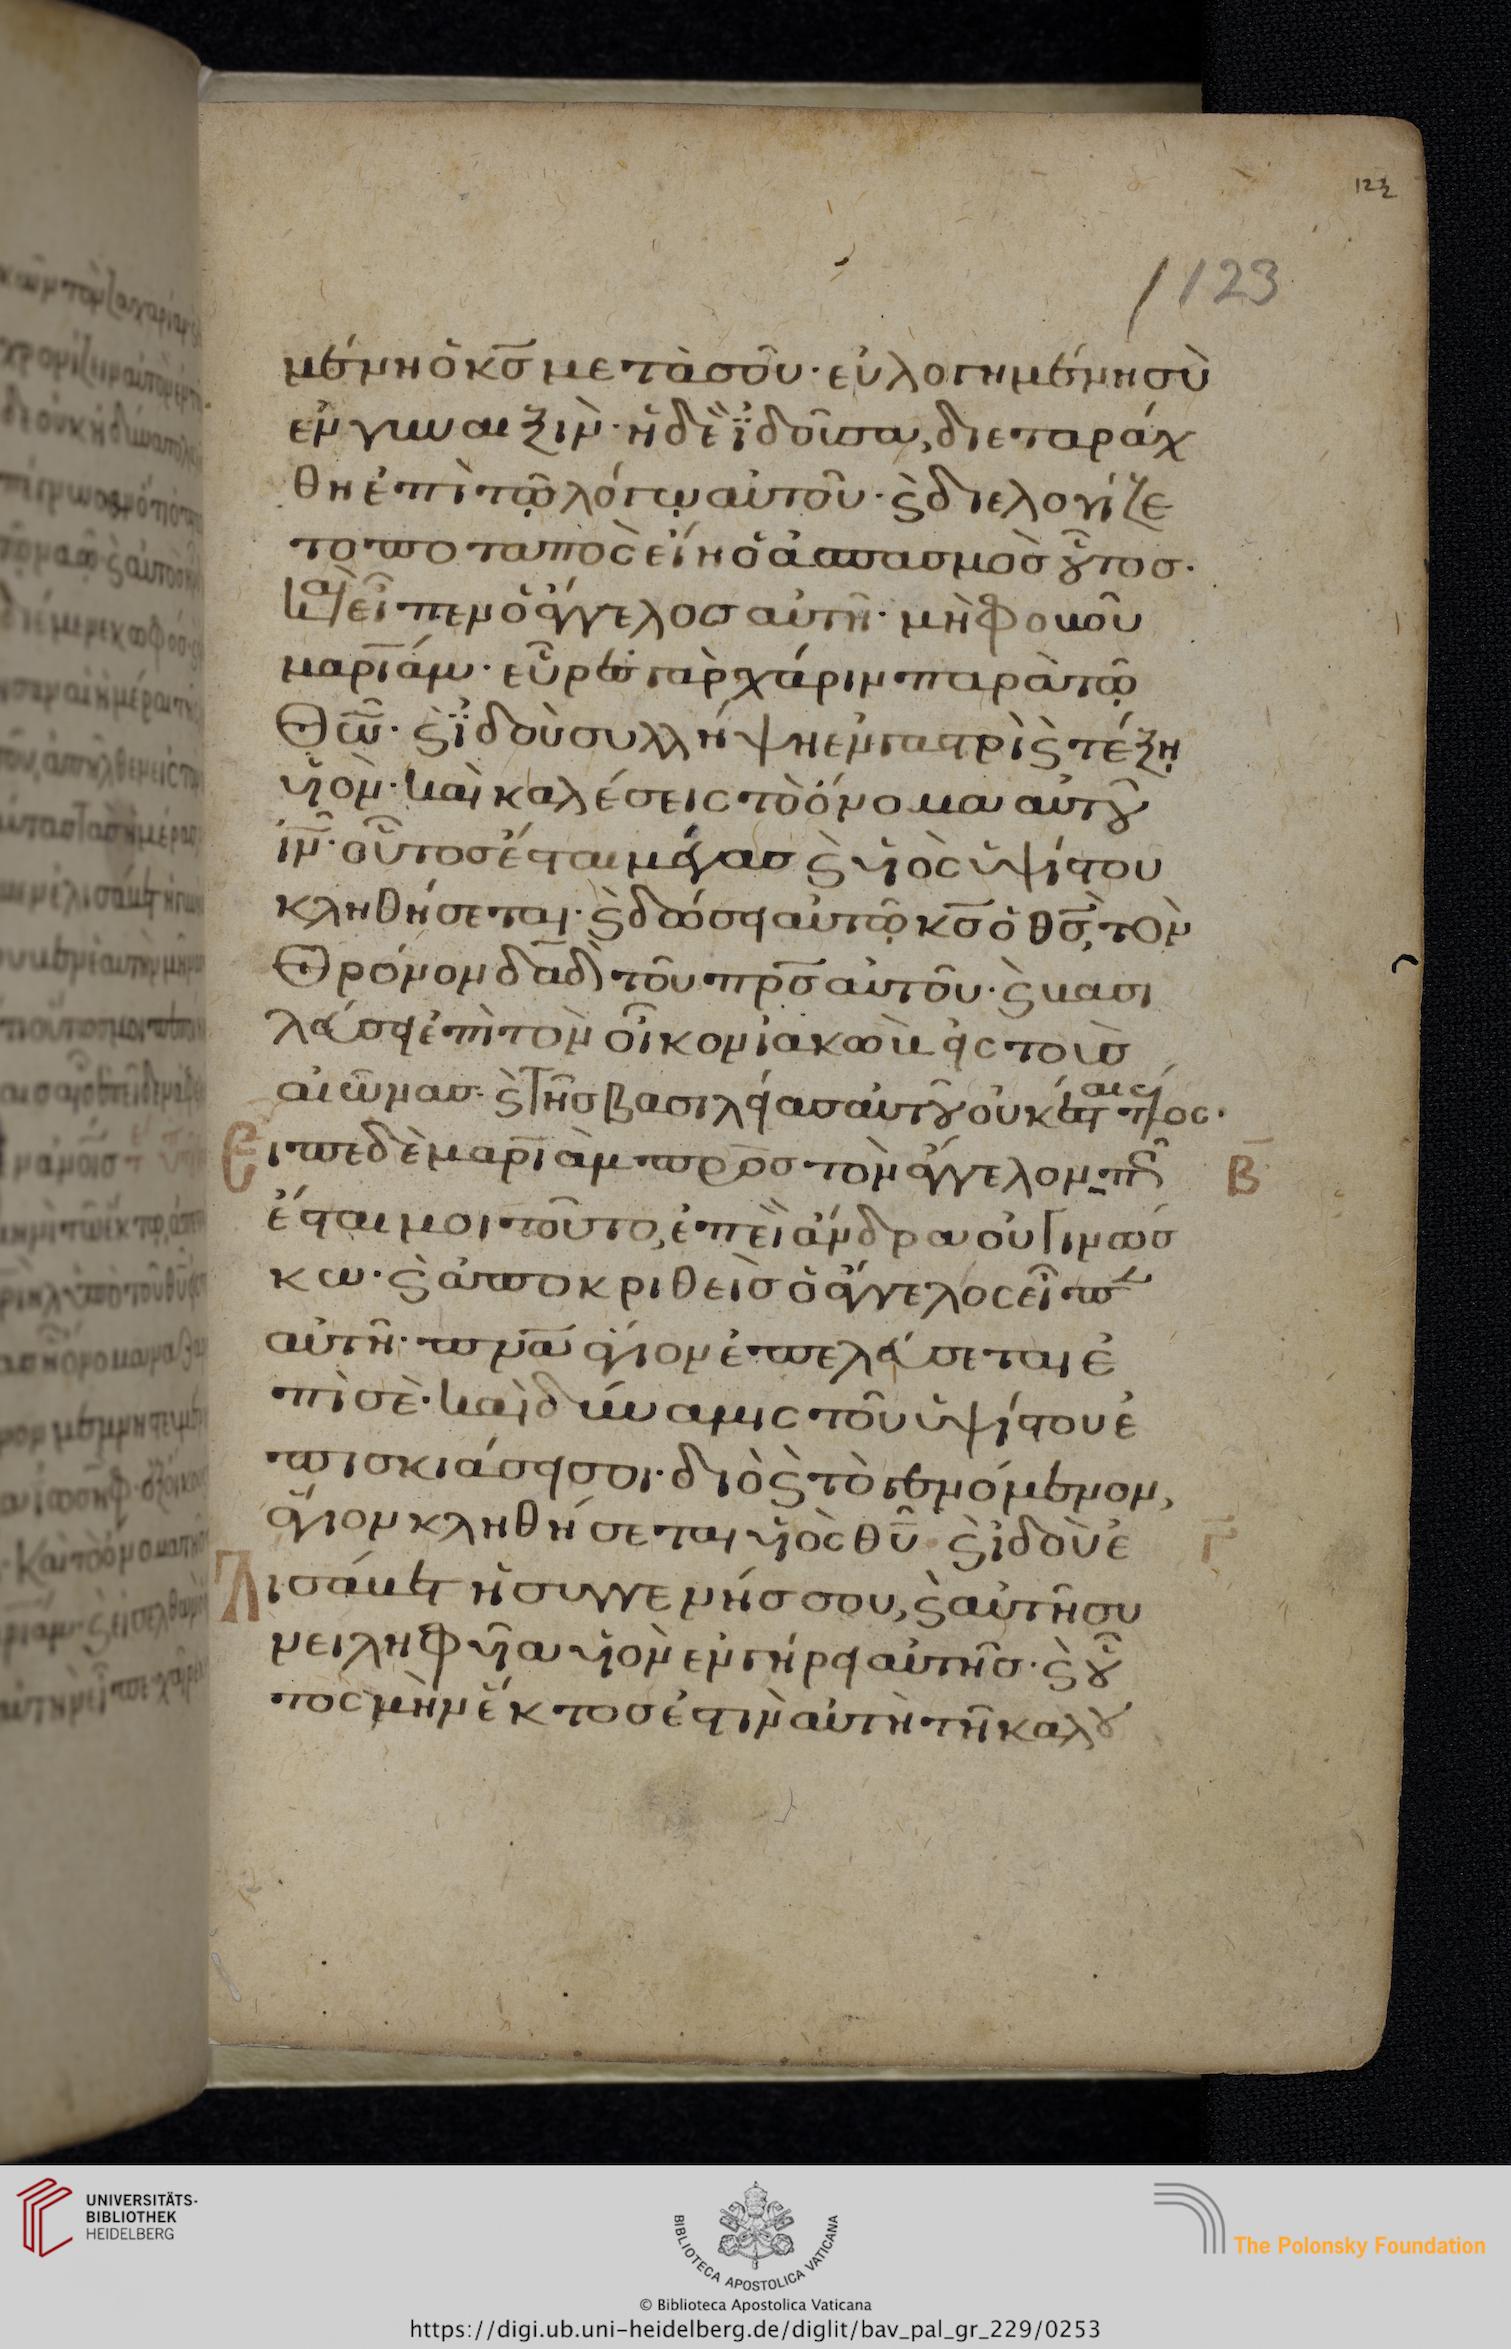 122
123
μένη ὁ κς μετὰ σοῦ· εὐλογημένη σὺ
ἐν γυναιξὶν· ἡ δὲ ἰδοῦσα, διεταράχ
θη ἐπὶ τῷ λόγῳ αὐτοῦ· ϛ διελογίζε
το ποταπὸς εἴη ὁ ἀσπασμὸσ οὗτοσ·
καὶ εἶπεν ὁ ἄγγελοσ αὐτῆ· μὴ φοβοῦ
μαριάμ· εὗρες γὰρ χάριν παρὰ τῷ
θῶ· ϛ ἰδοὺ συλλήψη ἐν γαστρὶ ϛ τέξη
υἱὸν· καὶ καλέσεις τὸ ὄνομα αὐτοῦ
ιν· οὗτοσ ἔσται μέγασ ϛ υἱὸς ὑψίστου
κληθήσεται· ϛ δώσει αὐτῷ κς ὁ θς, τὸν
θρόνον δαδ τοῦ πρσ αὐτοῦ· ϛ βασι
λεύσει ἐπὶ τὸν οἶκον ἰακὼβ εἰς τοὺσ
αἰῶνασ· ϛ τῆσ βασιλείασ αὐτοῦ οὐκ ἔσται τέλος·
Ειπε δὲ μαριὰμ πρὸσ τὸν ἄγγελον· πῶς
Β
ἔσται μοι τοῦτο, ἐπεὶ ἄνδρα οὐ γινώσ
κω· ϛ ἀποκριθεὶσ ὁ ἄγγελος εἶπεν
αὐτῆ· πνα ἅγιον ἐπελεύσεται ἐ
πὶ σὲ· καὶ δύναμις τοῦ ὑψίστου ἐ
πισκιάσει σοι· διὸ ϛ τὸ γεννόμενον,
ἅγιον κληθήσεται υἱὸς θυ· ϛ ἰδοὺ ἐ
Γ
λισάβετ ἡ συγγενήσ σου, ϛ αὐτὴ συ
νειληφυῖα υἱὸν ἐν γήρει αὐτῆσ· ϛ οὗ
τος μὴν ἕκτοσ ἐστιν αὐτὴ τῆ καλου
UNIVERSITÄTS-
BIBLIOTHEK
HEIDELBERG
BIBLIOTECA APOSTOLICA VATICANA
The Polonsky Foundation
© Biblioteca Apostolica Vaticana
https://digi.ub.uni-heidelberg.de/diglit/bav_pal_gr_229/0253